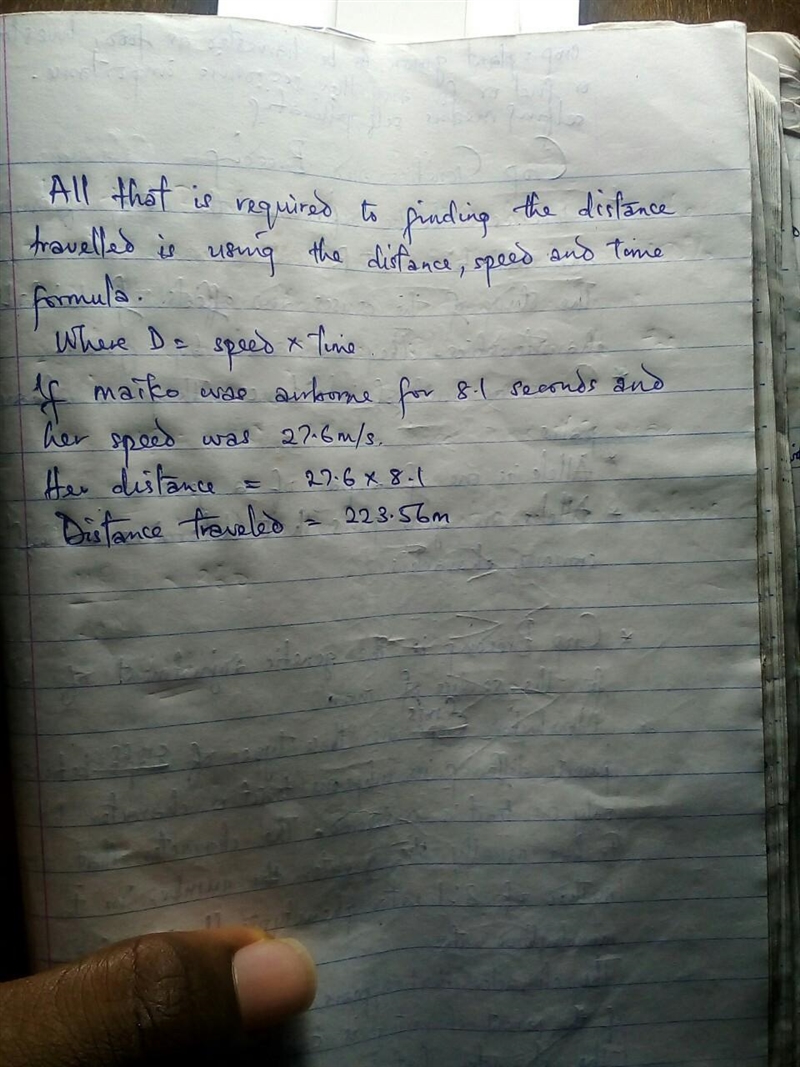 All that is required to finding the distance
travelled is using the distance, speed and time
formula.
Where D = speed × Time.
If maiko was airborne for 8.1 seconds and
her speed was 27.6m/s.
Her distance = 27.6 × 8.1
Distance traveled = 223.56m